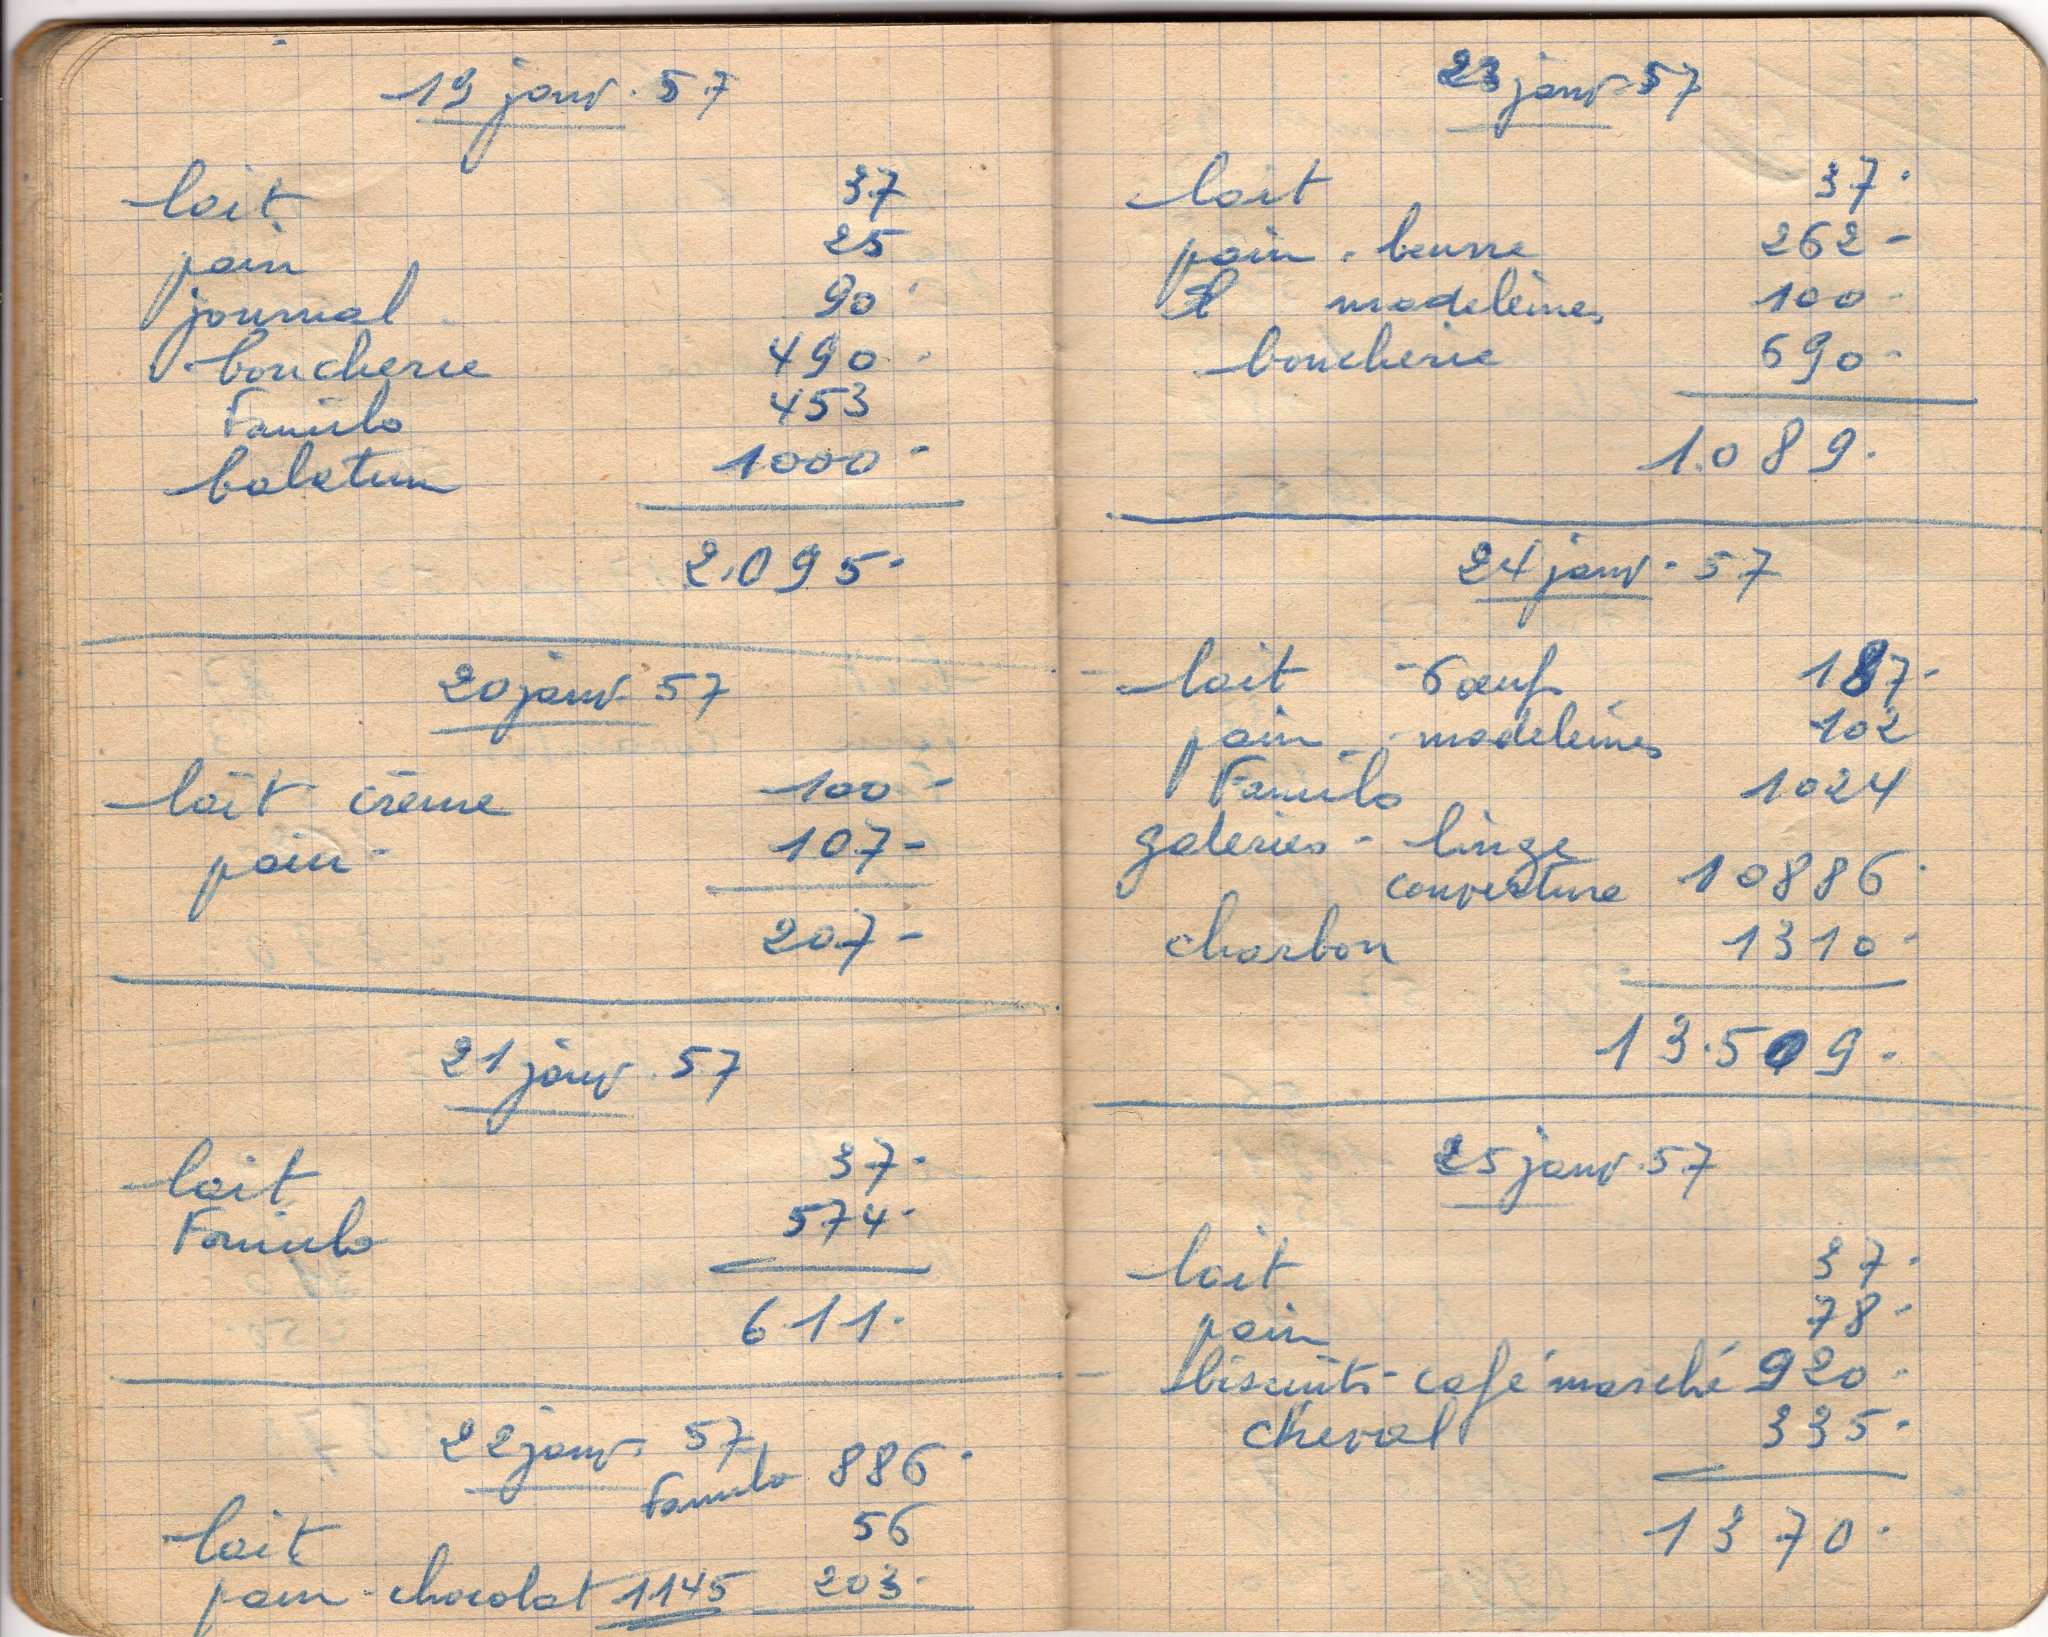 19 janv. 57
lait 37
pain 25
journal 90
boucherie 490
Famibo 453
balatum 1000-
2.095-
20 janv. 57
lait crème 100-
pain- 107-
207-
21 janv. 57
lait 37-
574-
611.
22 janv. 57
886-
lait 56
pain-chocolat 1145 203-
23 janv. 57
lait 37.
pain. beurre 262-
madeleines 100-
boucherie 690-
1.089.
24 janv. 57
lait - 6 œufs 187-
pain - madeleines 102
1024
galeries - linge
couverture 10886.
charbon 1310-
13.509.
25 janv. 57
lait 37.
pain 78-
biscuits-café marché 920-
cheval 335-
1370.